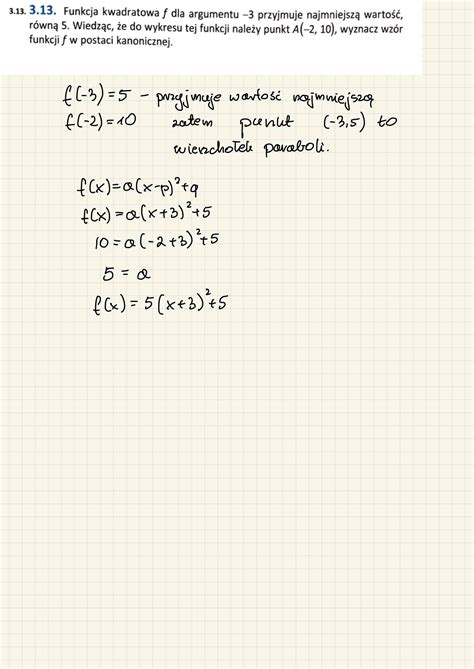 3.13. 3.13. Funkcja kwadratowa f dla argumentu –3 przyjmuje najmniejszą wartość,
równą 5. Wiedząc, że do wykresu tej funkcji należy punkt A(–2, 10), wyznacz wzór
funkcji f w postaci kanonicznej.
f(-3) = 5 – przyjmuje wartość najmniejszą
f(-2) = 10 zatem punkt (-3,5) to
wierzchołek paraboli.
f(x) = a(x-p)²+q
f(x) = a(x+3)²+5
10 = a(-2+3)²+5
5 = a
f(x) = 5(x+3)²+5